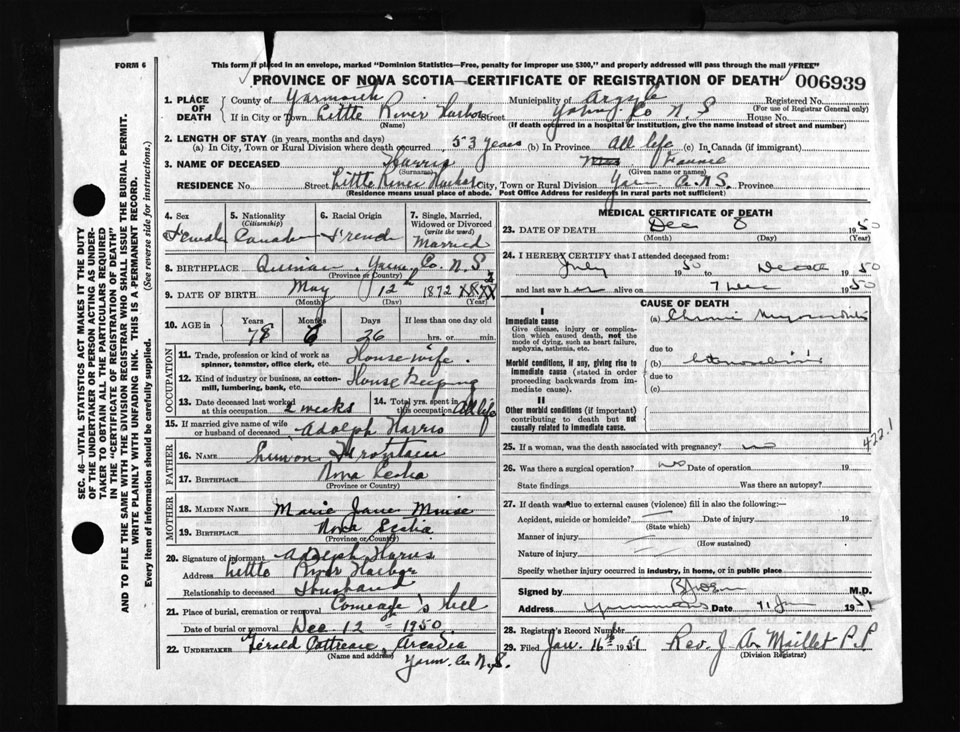 FORM 6
This form if placed in an envelope, marked "Dominion Statistics—Free, penalty for improper use $300," and properly addressed will pass through the mail "FREE"
PROVINCE OF NOVA SCOTIA—CERTIFICATE OF REGISTRATION OF DEATH 006939
1. PLACE OF DEATH
County of Yarmouth Municipality of Argyle Registered No.
(For use of Registrar General only)
If in City or Town Little River Harbor Street Yarm. Co N. S House No.
(Name) (If death occurred in a hospital or institution, give the name instead of street and number)
2. LENGTH OF STAY (in years, months and days)
(a) In City, Town or Rural Division where death occurred 53 years (b) In Province all life (c) In Canada (if immigrant)
3. NAME OF DECEASED Harris
(Surname) (Given name or names)
RESIDENCE No. Street Little River Harbor City, Town or Rural Division Yar Co. N.S. Province
(Residence means usual place of abode. Post Office Address for residents in rural parts not sufficient)
4. Sex Female
5. Nationality (Citizenship)
6. Racial Origin French
7. Single, Married, Widowed or Divorced (write the word) Married
8. BIRTHPLACE Quinan, Yarm. Co. N. S
(Province or Country)
9. DATE OF BIRTH May 12th 1872
(Month) (Day) (Year)
10. AGE in Years Months Days If less than one day old
78 6 26 hrs. or min.
OCCUPATION
11. Trade, profession or kind of work as spinner, teamster, office clerk, etc. Housewife.
12. Kind of industry or business, as cotton-mill, lumbering, bank, etc. House Keeping
13. Date deceased last worked at this occupation 2 weeks
14. Total yrs. spent in this occupation All life
15. If married give name of wife or husband of deceased Adolph Harris
FATHER
16. NAME
17. BIRTHPLACE Nova Scotia
(Province or Country)
MOTHER
18. MAIDEN NAME Marie Jane Muise
19. BIRTHPLACE Nova Scotia
(Province or Country)
20. Signature of informant Adolph Harris
Address Little River Harbor
Relationship to deceased Husband
21. Place of burial, cremation or removal Comeau's Hill
Date of burial or removal Dec 12th 1950
22. UNDERTAKER Gerald Cottreau, Arcadia
(Name and address) Yarm. Co N.S.
MEDICAL CERTIFICATE OF DEATH
23. DATE OF DEATH Dec 8 1950
(Month) (Day) (Year)
24. I HEREBY CERTIFY that I attended deceased from
July 1950 to Death 1950
and last saw her alive on 7 Dec 1950
CAUSE OF DEATH
I
Immediate cause (a) Chronic Myocarditis
Give disease, injury or complication which caused death, not the mode of dying, such as heart failure, asphyxia, asthenia, etc.
due to
Morbid conditions, if any, giving rise to immediate cause (stated in order proceeding backwards from immediate cause).
(b)
due to
(c)
II
Other morbid conditions (if important) contributing to death but not causally related to immediate cause.
422.1
25. If a woman, was the death associated with pregnancy? no
26. Was there a surgical operation? no Date of operation 19
State findings Was there an autopsy?
27. If death was due to external causes (violence) fill in also the following:—
Accident, suicide or homicide? Date of injury 19
(State which)
Manner of injury
(How sustained)
Nature of injury
Specify whether injury occurred in industry, in home, or in public place
Signed by M.D.
Address Date 11 Jan 1951
28. Registrar's Record Number
29. Filed Jan. 16th 1951 Rev. J. A. Maillet P.P.
(Division Registrar)
SEC. 46—VITAL STATISTICS ACT MAKES IT THE DUTY
OF THE UNDERTAKER OR PERSON ACTING AS UNDER-
TAKER TO OBTAIN ALL THE PARTICULARS REQUIRED
IN THE "CERTIFICATE OF REGISTRATION OF DEATH"
AND TO FILE THE SAME WITH THE DIVISION REGISTRAR WHO SHALL ISSUE THE BURIAL PERMIT.
WRITE PLAINLY WITH UNFADING INK. THIS IS A PERMANENT RECORD.
Every item of information should be carefully supplied. (See reverse side for instructions.)